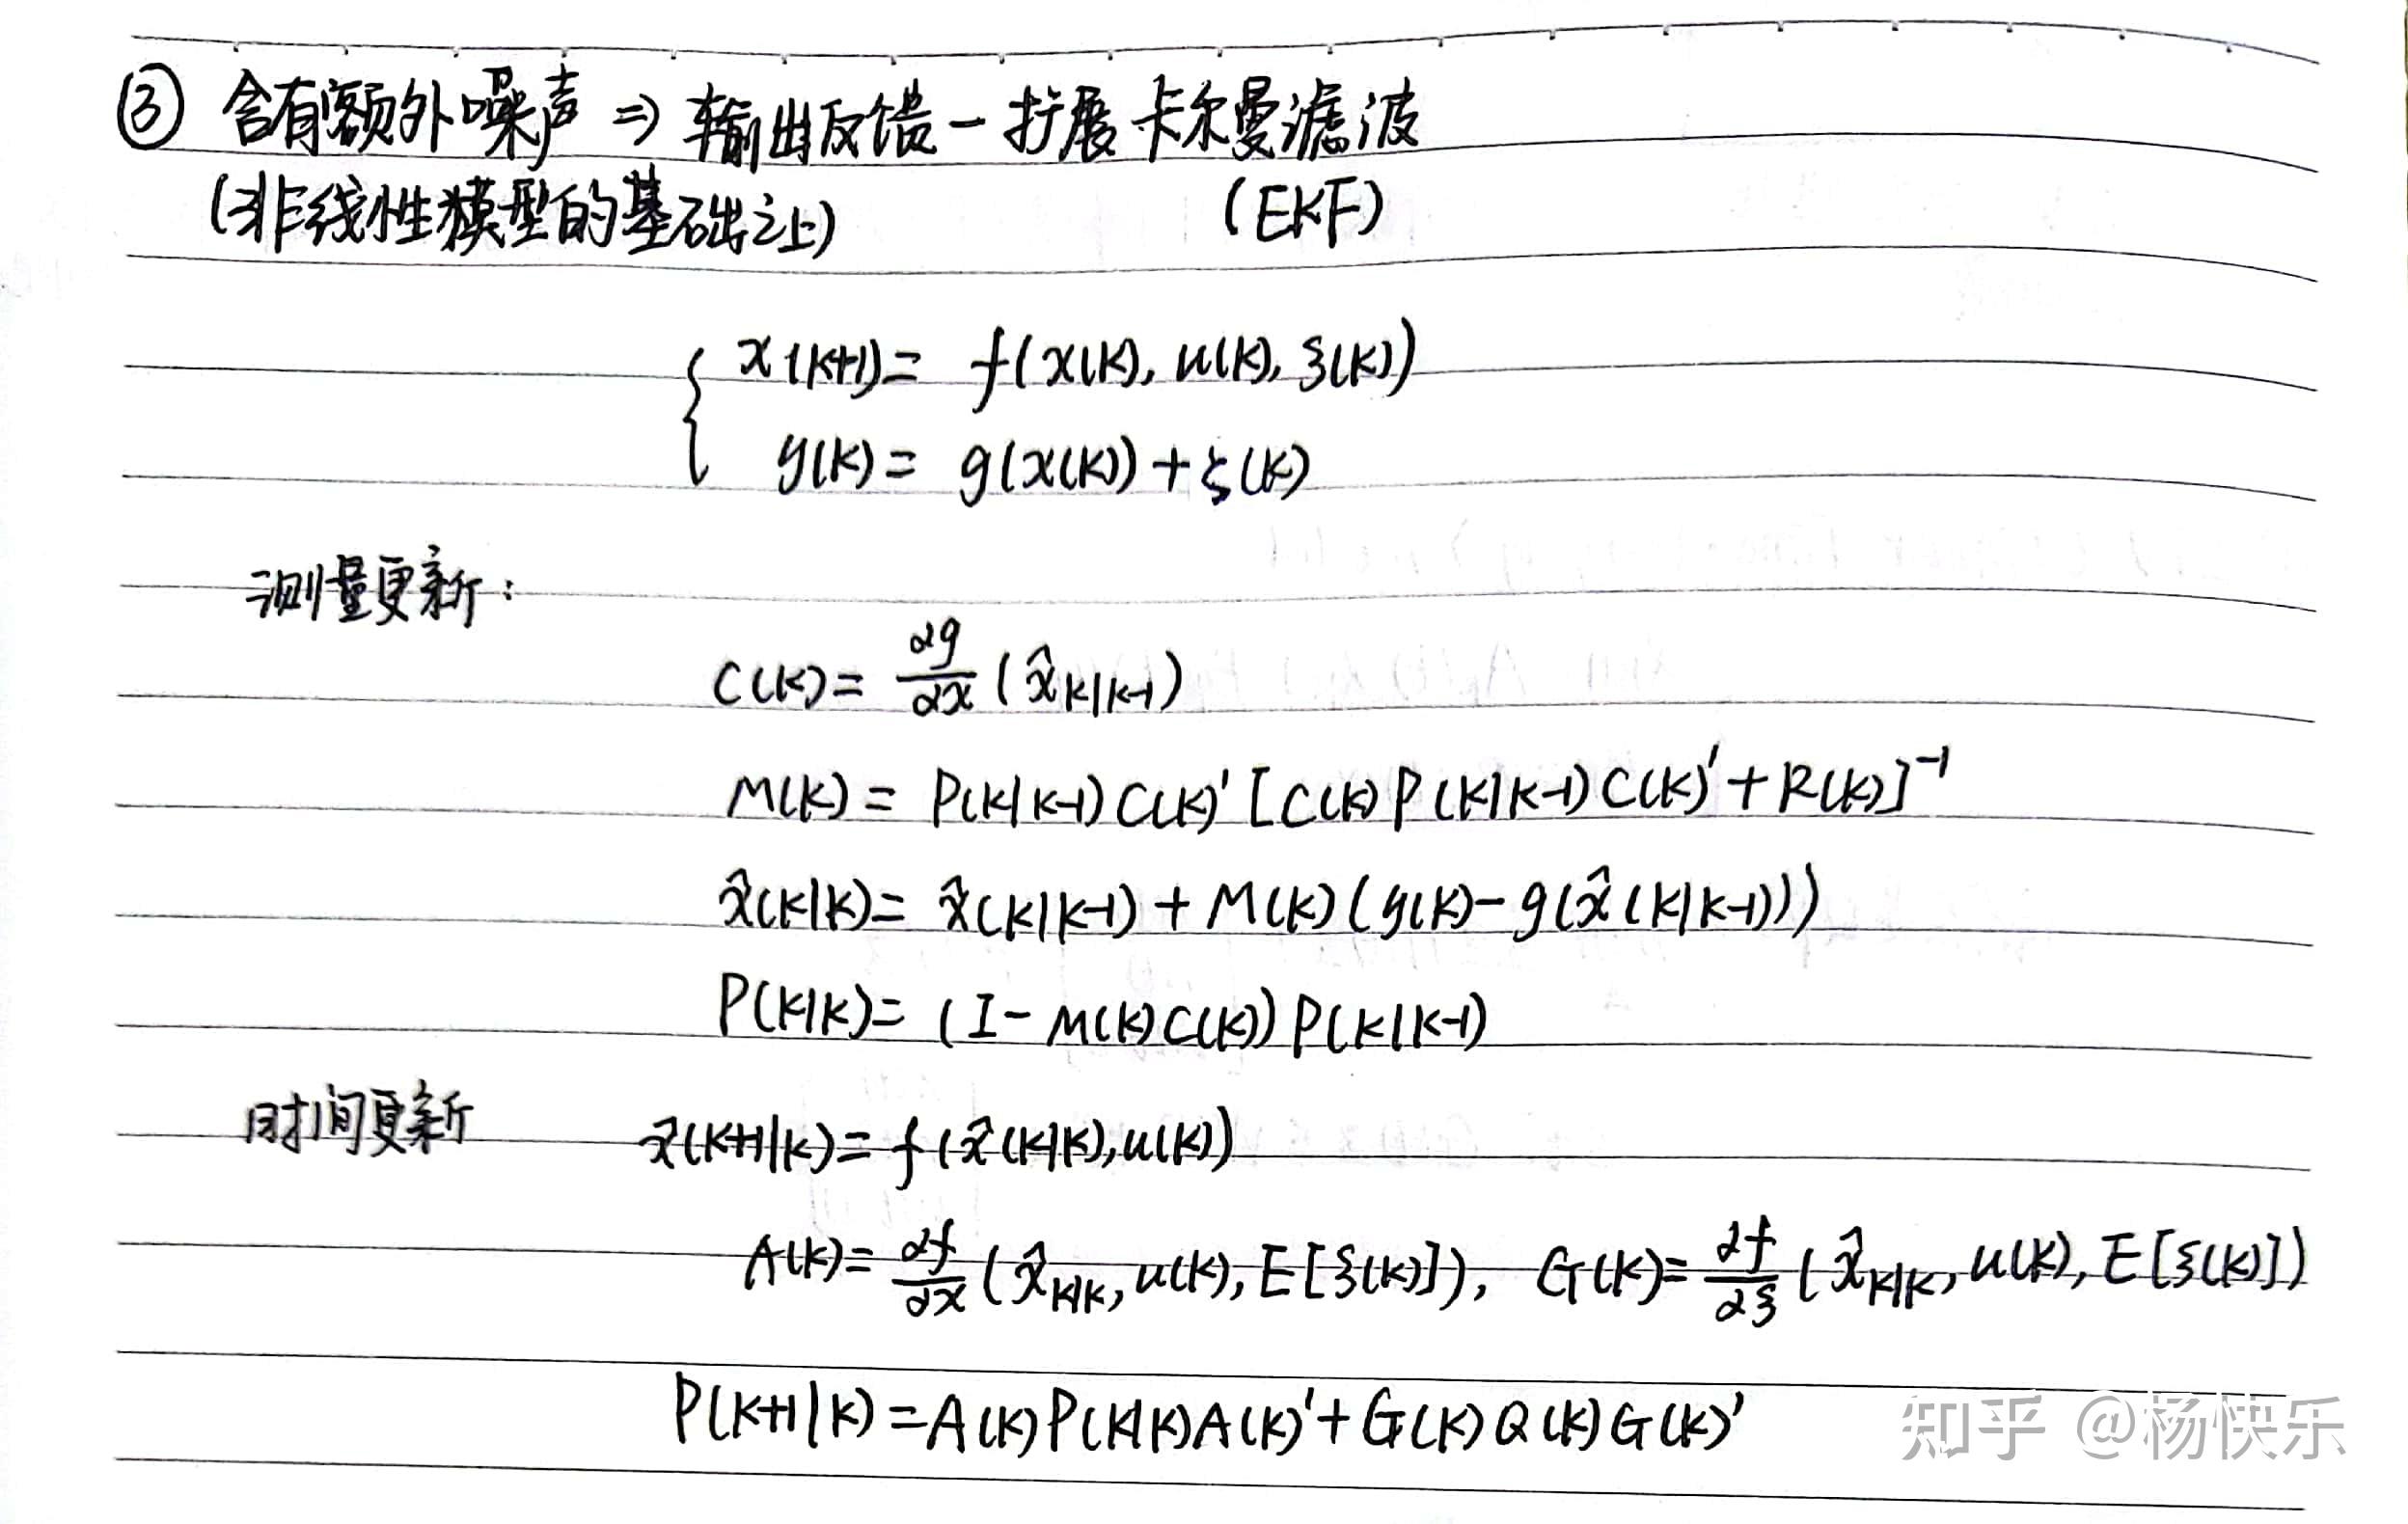 ③ 含有额外噪声 ⇒ 输出反馈 - 扩展卡尔曼滤波
(非线性模型的基础之上) (EKF)
x(k+1) = f(x(k), u(k), ξ(k))
y(k) = g(x(k)) + ζ(k)
测量更新:
C(k) = ∂g/∂x (x̂k|k-1)
M(k) = P(k|k-1) C(k)' [C(k) P(k|k-1) C(k)' + R(k)]⁻¹
x̂(k|k) = x̂(k|k-1) + M(k) (y(k) - g(x̂(k|k-1)))
P(k|k) = (I - M(k)C(k)) P(k|k-1)
时间更新 x̂(k+1|k) = f(x̂(k|k), u(k))
A(k) = ∂f/∂x (x̂k|k, u(k), E[ξ(k)]), G(k) = ∂f/∂ξ (x̂k|k, u(k), E[ξ(k)])
P(k+1|k) = A(k)P(k|k)A(k)' + G(k)Q(k)G(k)'
知乎 @杨快乐